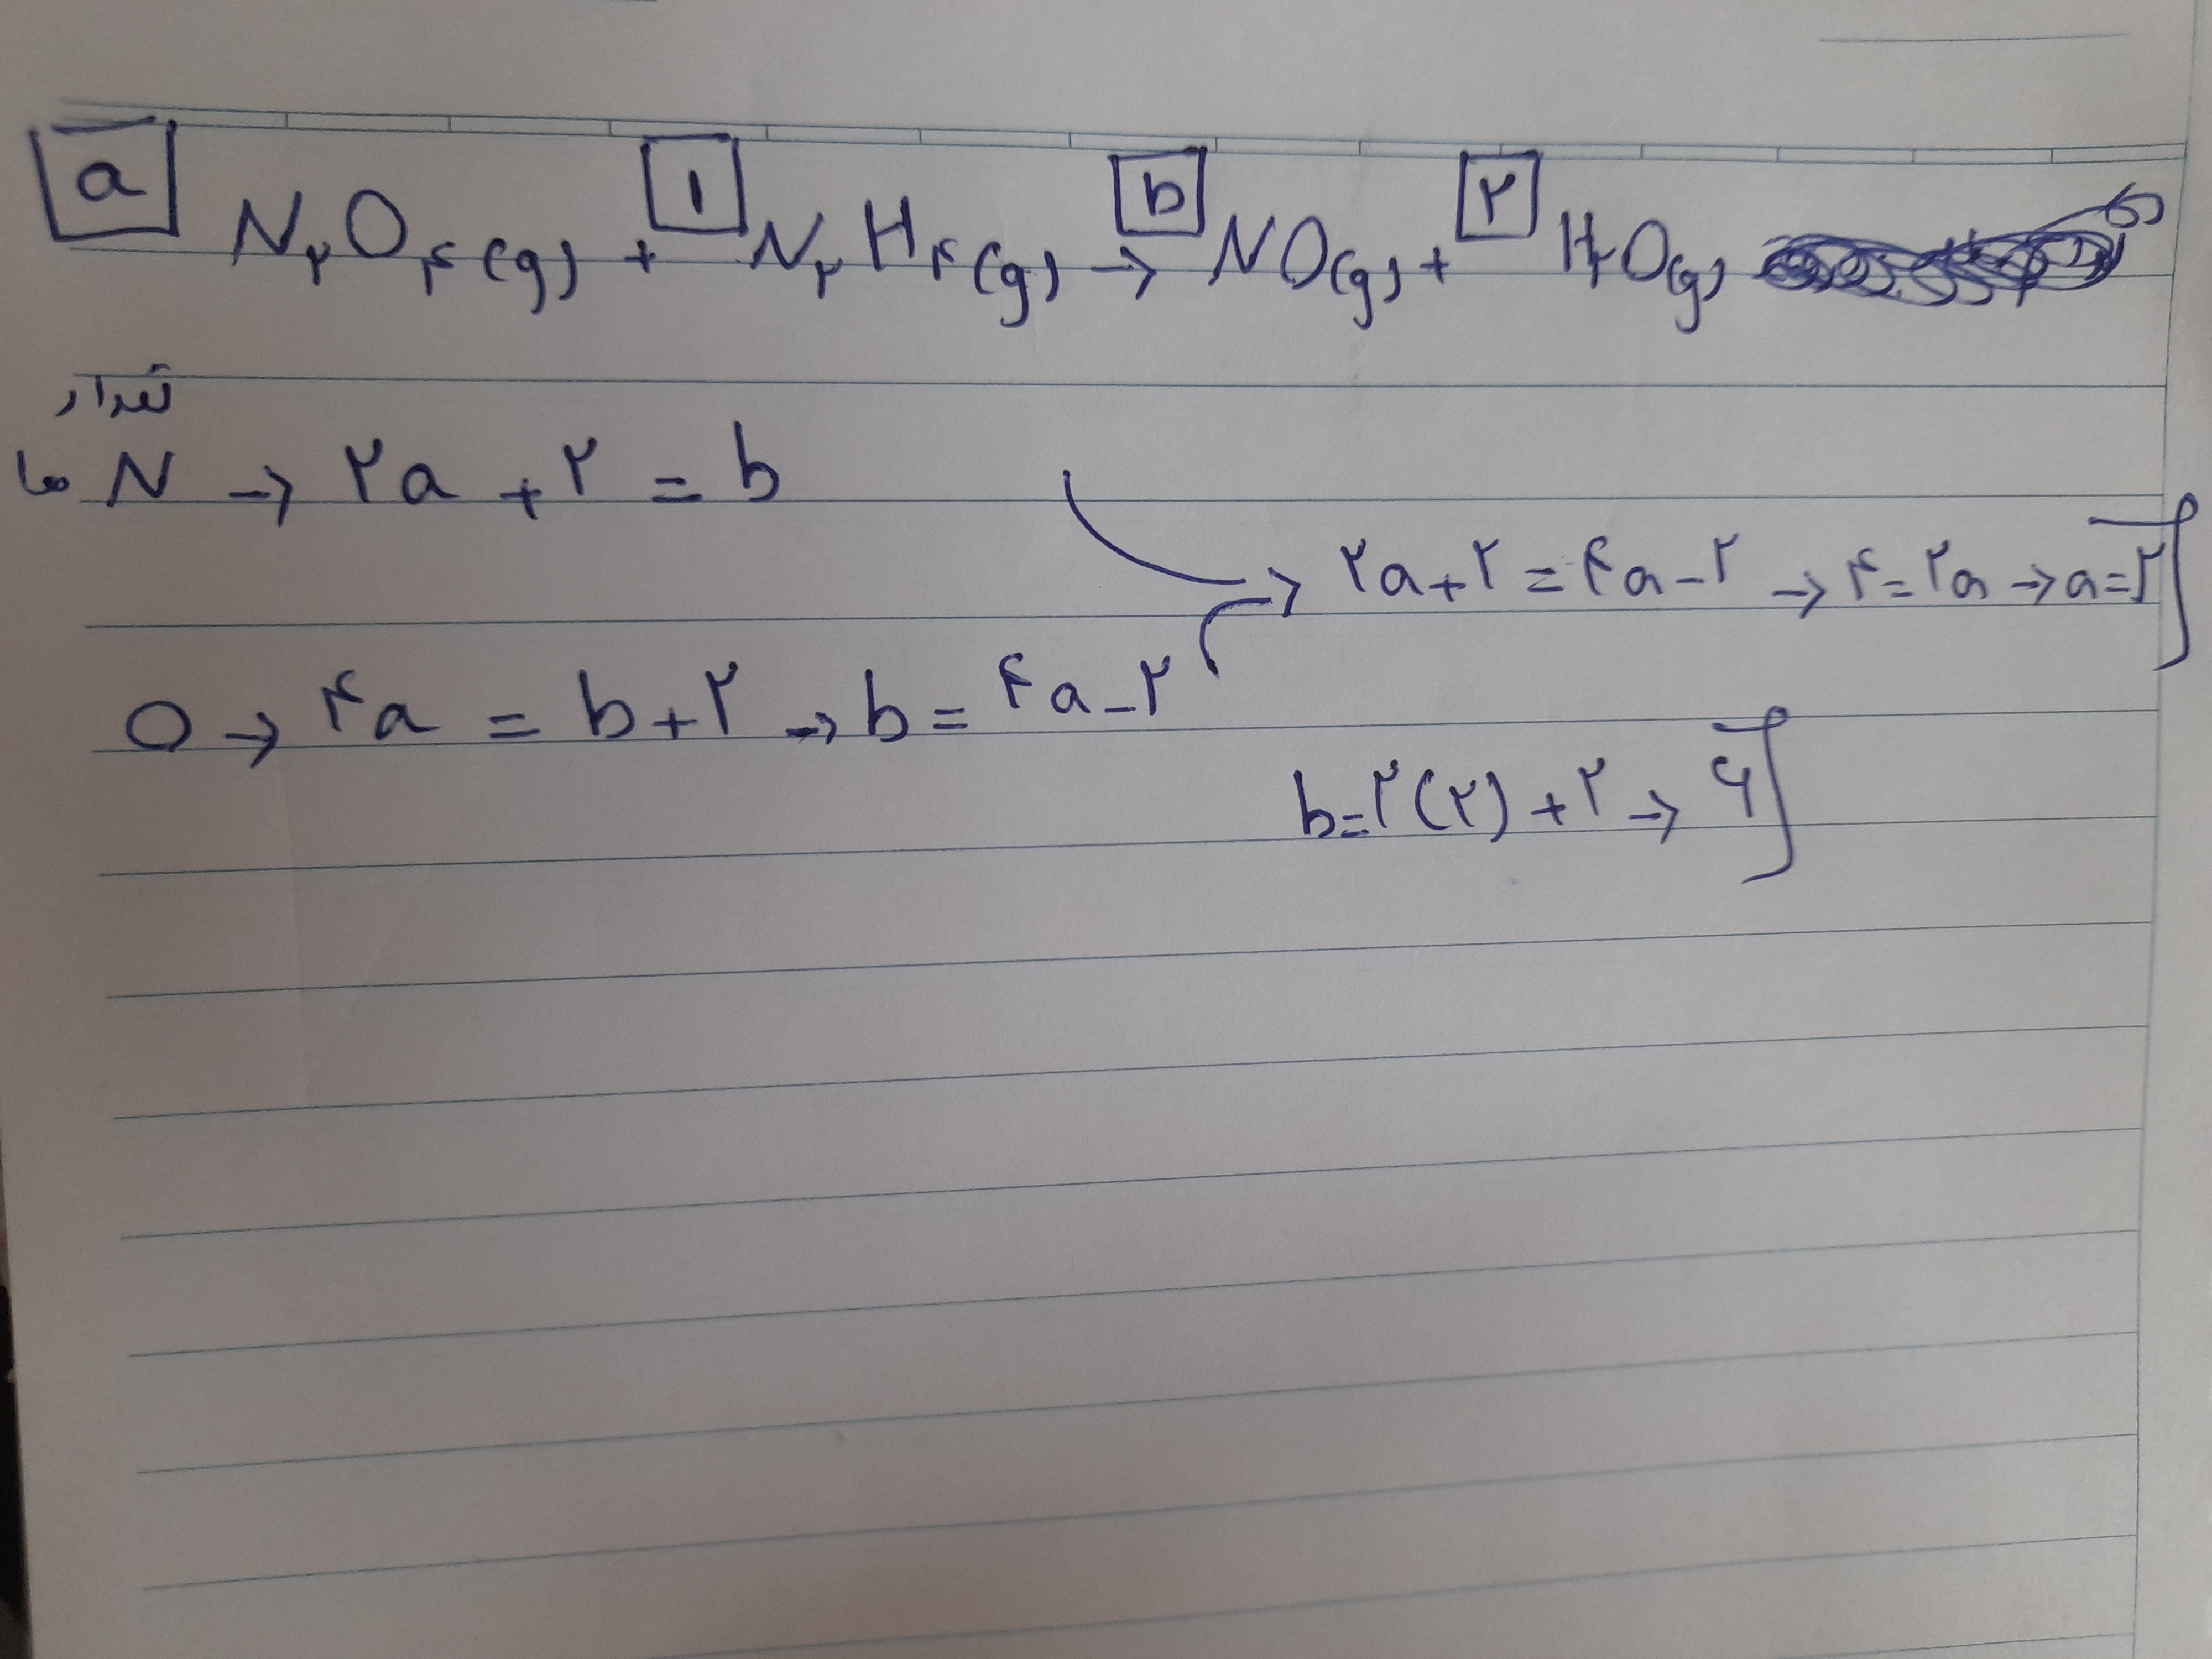 a N۲O۴(g) + ۱ N۲H۴(g) → b NO(g) + ۲ H۲O(g)
تعداد
N ها → ۲a + ۲ = b
۲a + ۲ = ۴a - ۲ → ۴ = ۲a → a = ۲
O → ۴a = b + ۲ → b = ۴a - ۲
b = ۲(۲) + ۲ → ۶